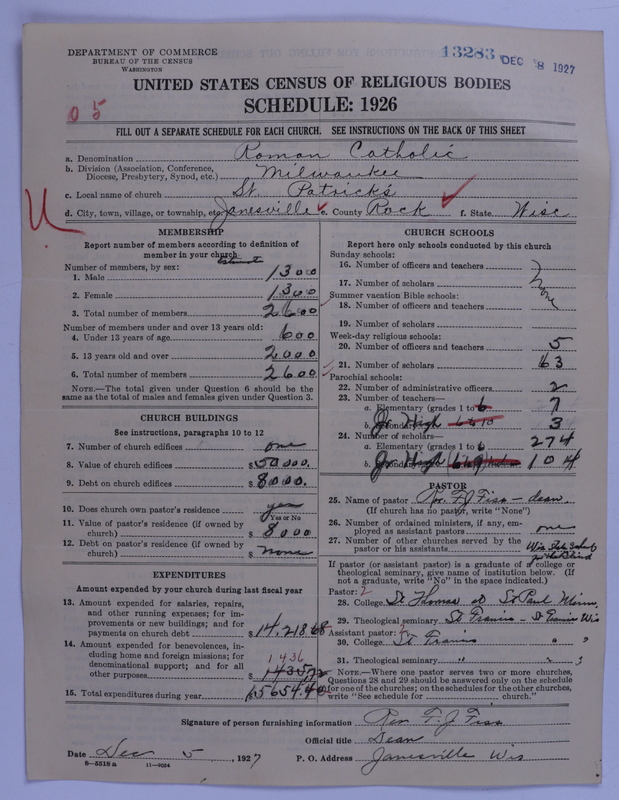 DEPARTMENT OF COMMERCE
BUREAU OF THE CENSUS
WASHINGTON
13283 DEC 8 1927
UNITED STATES CENSUS OF RELIGIOUS BODIES
SCHEDULE: 1926
05
FILL OUT A SEPARATE SCHEDULE FOR EACH CHURCH. SEE INSTRUCTIONS ON THE BACK OF THIS SHEET
a. Denomination Roman Catholic
b. Division (Association, Conference, Diocese, Presbytery, Synod, etc.) Milwaukee
c. Local name of church St. Patricks
d. City, town, village, or township, etc. Janesville e. County Rock f. State Wisc
U
MEMBERSHIP
Report number of members according to definition of member in your church
Number of members, by sex: estimate
1. Male 1300
2. Female 1300
3. Total number of members 2600
Number of members under and over 13 years old:
4. Under 13 years of age 600
5. 13 years old and over 2000
6. Total number of members 2600
NOTE.—The total given under Question 6 should be the same as the total of males and females given under Question 3.
CHURCH BUILDINGS
See instructions, paragraphs 10 to 12
7. Number of church edifices one
8. Value of church edifices $50000.
9. Debt on church edifices $8000.
10. Does church own pastor's residence? yes
Yes or No
11. Value of pastor's residence (if owned by church) $8000
12. Debt on pastor's residence (if owned by church) $ none
EXPENDITURES
Amount expended by your church during last fiscal year
13. Amount expended for salaries, repairs, and other running expenses; for improvements or new buildings; and for payments on church debt $14,218.68
14. Amount expended for benevolences, including home and foreign missions; for denominational support; and for all other purposes 1436 $1435.72
15. Total expenditures during year $15654.40
CHURCH SCHOOLS
Report here only schools conducted by this church
Sunday schools:
16. Number of officers and teachers
17. Number of scholars none
Summer vacation Bible schools:
18. Number of officers and teachers
19. Number of scholars
Week-day religious schools:
20. Number of officers and teachers 5
21. Number of scholars 63
Parochial schools:
22. Number of administrative officers 2
23. Number of teachers—
a. Elementary (grades 1 to 6 7
b. Jr High 3
24. Number of scholars—
a. Elementary (grades 1 to 6 274
b. Jr High 104
PASTOR
25. Name of pastor Rev. F J Fiss - dean.
(If church has no pastor, write "None")
26. Number of ordained ministers, if any, employed as assistant pastors one
27. Number of other churches served by the pastor or his assistants Wis School for the Blind
If pastor (or assistant pastor) is a graduate of a college or theological seminary, give name of institution below. (If not a graduate, write "No" in the space indicated.)
Pastor: 2
28. College St Thomas at St Paul Minn,
29. Theological seminary St Francis - St Francis Wis
Assistant pastor: 2
30. College St Francis " "
31. Theological seminary " " "
NOTE.—Where one pastor serves two or more churches, Questions 28 and 29 should be answered only on the schedule for one of the churches; on the schedules for the other churches, write "See schedule for ______ church."
Signature of person furnishing information Rev. F. J Fiss
Official title Dean
Date Dec 5, 1927 P. O. Address Janesville Wis
8-5518a 11-9034